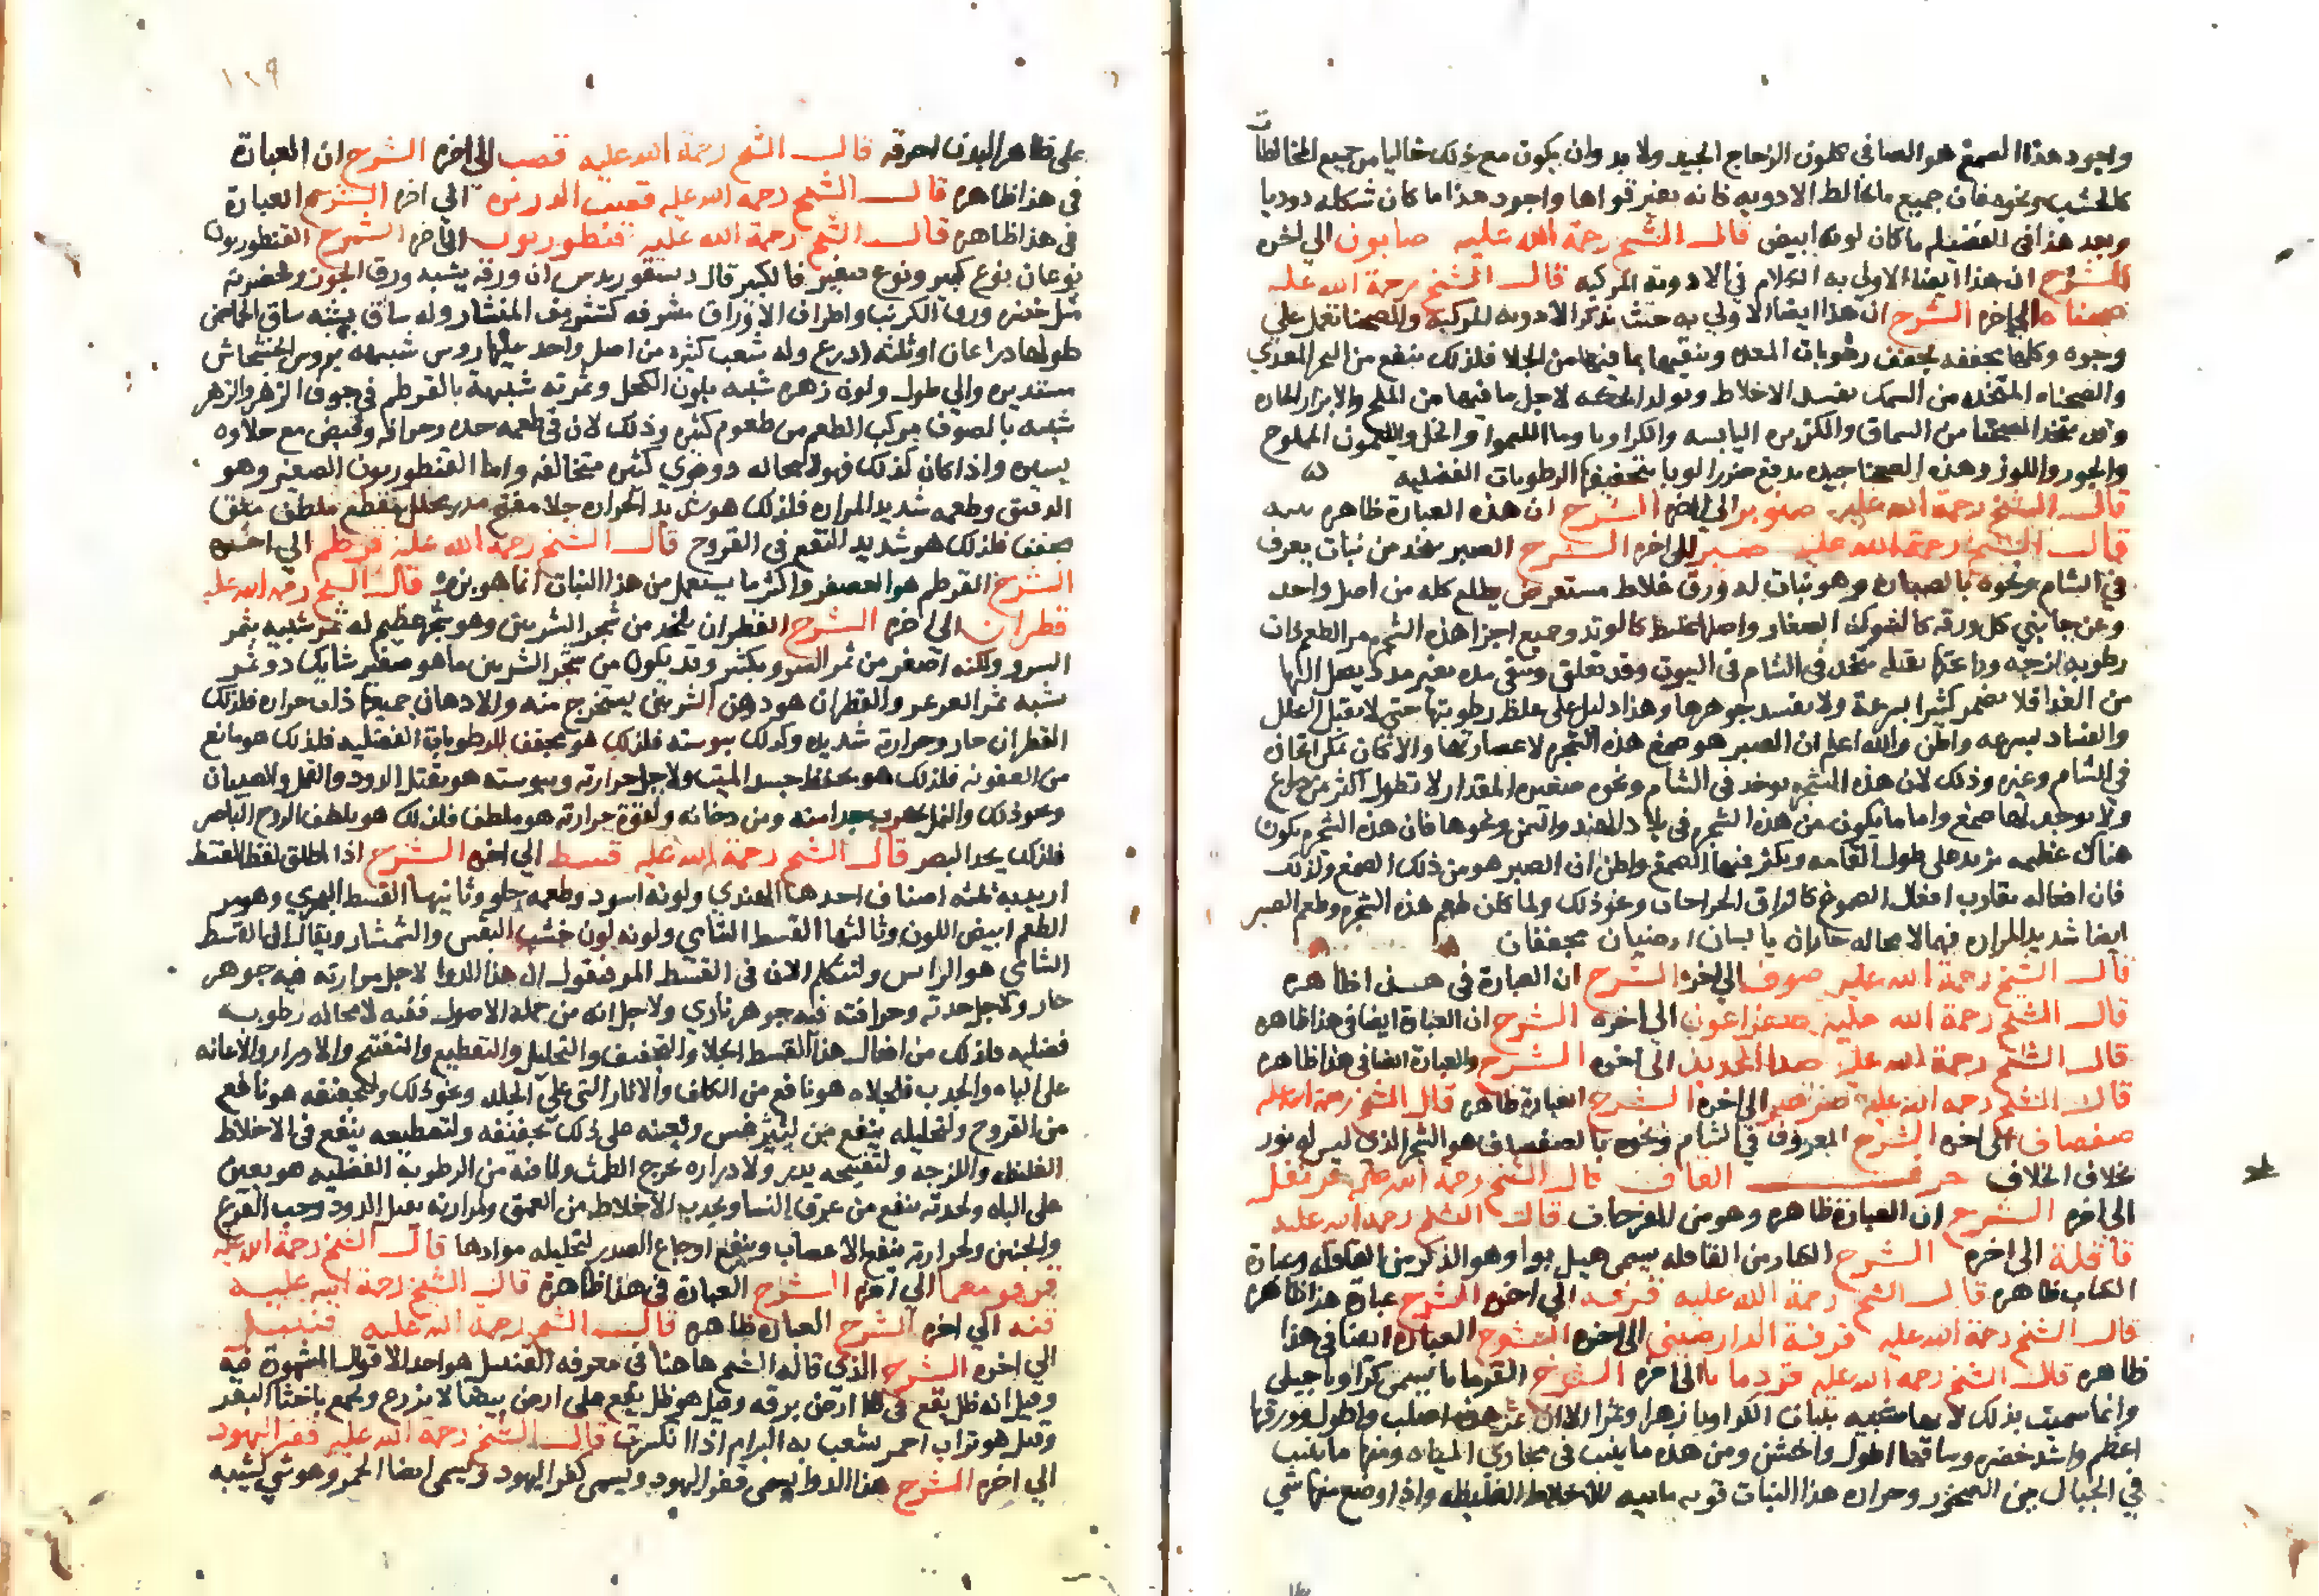 واجود هذا الصمغ هو الصافي كلون الزجاج الجيد ولا بد وان يكون مع ذلك خاليا من جميع المخالطات
كالخشب ونحوه فان جميع ما يخالط الادويه فانه يغير قواها واجود هذا ما كان شكله دوديا
وبعد هذا في الفضيله ما كان لونه ابيض قال الشيخ رحمة الله عليه صابون الي اخره
الشرح ان هذا ايضا الاولي به الكلام في الادويه المركبه قال الشيخ رحمة الله عليه
صحناه الي اخره الشرح ان هذا ايضا الاولي به حيث نذكر الادويه المركبه والصحنا تعمل علي
وجوه وكلها مجففه تجفف رطوبات المعده وتنقيها بما فيها من الجلا فلذلك ينفع من البخر المعدي
والصحناه المتخذه من السمك تفسد الاخلاط وتولد الحكه لاجل ما فيها من الملح والابزار الحاره
وقد تتخذ الصحنا من السماق والكزبره اليابسه والكراويا وما الليموا والخل والليمون المملوح
والجوز واللوز وهذه الصحنا جيده تدفع ضرر الوبا بتجفيفها الرطوبات الفضليه
قال الشيخ رحمة الله عليه صنوبر الي اخره الشرح ان هذه العبارة ظاهره
قال الشيخ رحمة الله عليه صبر الي اخره الشرح الصبر يتخذ من نبات يعرف
في الشام ونحوه بالصباره وهو نبات له ورق غلاط مستعرض يطلع كله من اصل واحد
وعن جانبي كل ورقه كالشوك الصغار واصلها غليظ كالوتد وجميع اجزا هذه الشجره مر الطعم ذات
رطوبه لزجه ورائحتها ثقيله تتخذ في الشام في البيوت وقد تعلق وتبقى مده بغير مدد يصل اليها
من الغدا فلا تضمر كثيرا بسرعة ولا يفسد جوهرها وهذا دليل على غلظ رطوبتها حتى لا تقبل التحلل
والفساد بسرعه واظن والله اعلم ان الصبر هو صمغ هذه الشجره لا عصارتها والا لكان يمكن اتخاذه
في الشام وغيره وذلك لان هذه الشجره توجد في الشام ونحوه صغيره المقدار لا تطول اكثر من ذراع
ولا يوجد لها صمغ واما ما يكون من هذه الشجره في بلاد الهند واليمن ونحوها فان هذه الشجره تكون
هناك عظيمه تزيد على طول القامه ويكثر فيها الصمغ واظن ان الصبر هو من ذلك الصمغ ولذلك
فان افعاله تقارب افعال الصموغ كالزاق الجراحات ونحو ذلك ولما كان طعم هذه الشجره وطعم الصبر
ايضا شديد المراره فهما لا محاله حاران يابسان ارضيان مجففان
قال الشيخ رحمة الله عليه صوف الي اخره الشرح ان العبارة في هذا ظاهره
قال الشيخ رحمة الله عليه الي اخره الشرح ان العبارة ايضا في هذا ظاهره
قال الشيخ رحمة الله عليه صدا الحديد الى اخره الشرح والعبارة ايضا في هذا ظاهره
قال الشيخ رحمه الله عليه الى اخره الشرح العبارة ظاهره قال الشيخ رحمة الله عليه
صفصاف الى اخره الشرح المعروف في الشام ونحوه بالصفصاف هو الشجر الذي ليس له نور
بخلاف الخلاف حرف القاف قال الشيخ رحمة الله عليه قرنفل
الى اخره الشرح ان العبارة ظاهره وهو من المفرحات قال الشيخ رحمه الله عليه
قاقلة الى اخره الشرح الكبار من القاقله يسمى هيل بوا وهو الذكر من القاقله وعبارة
الكتاب ظاهره قال الشيخ رحمة الله عليه الي اخره الشرح عبارة هذا ظاهره
قال الشيخ رحمة الله عليه قرفة الدارصيني الى اخره الشرح العبارة ايضا في هذا
ظاهره قال الشيخ رحمه الله عليه قردمانا الى اخره الشرح القردمانا تسمى كراويا جبلي
وانما سميت بذلك لانها شبيه بنبات الكراويا زهرا وثمرا الا ان ثمر هذه اصلب واطول وورقها
اعظم واشد خضره وساقها اطول واخشن ومن هذه ما ينبت في مجاري المياه ومنها ما ينبت
في الجبال بين الصخور وحراره هذا النبات قويه مذيبه للاخلاط الغليظه واذا وضع منها شي
١٨٩
على ظاهر البدن احرقه قال الشيخ رحمة الله عليه قصب الى اخره الشرح ان العبارة
في هذا ظاهره قال الشيخ رحمة الله عليه قصب الذريره الي اخره الشرح العبارة
في هذا ظاهره قال الشيخ رحمة الله عليه قنطوريون الي اخره الشرح القنطوريون
نوعان نوع كبير ونوع صغير فالكبير قال ديسقوريدس ان ورقه يشبه ورق الجوز وخضرته
مثل خضره ورق الكرنب واطراف الاوراق مشرفه كتشريف المنشار وله ساق يشبه ساق الحماض
طولها ذراعان او ثلثه اذرع وله شعب كثيره من اصل واحد عليها روس شبيهه بروس الخشخاش
مستديره والي طول ولون زهره شبيه بلون الكحل وثمرته شبيهة بالقرطم في جوف الزهر والزهر
شبيه بالصوف مركب الطعم من طعوم كثيره وذلك لان في طعمه حده وحرافه وقبض مع حلاوه
يسيره واذا كان كذلك فهو لا محاله ذو قوي كثيره متخالفه واما القنطوريون الصغير وهو
الدقيق وطعمه شديد المراره فلذلك هو شديد الحراره جلا مفتح مدر محلل مقطع ملطف منق
مجفف فلذلك هو شديد النفع في القروح قال الشيخ رحمه الله عليه قرطم الي اخره
الشرح القرطم هو العصفر واكثر ما يستعمل من هذا النبات انما هو بزره قال الشيخ رحمه الله عليه
قطران الي اخره الشرح القطران يتخذ من شجر الشربين وهو شجر عظيم له ثمر شبيه بثمر
السرو ولكنه اصغر من ثمر السرو بكثير وقد يكون من شجر الشربين ما هو صغير شايك ذو ثمر
يشبه ثمر العرعر والقطران هو دهن الشربين يستخرج منه والادهان جميعها ذات حراره فلذلك
القطران حار وحرارته شديده وكذلك يبوسته فلذلك هو مجفف للرطوبات الفضليه فلذلك هو مانع
من العفونه فلذلك هو يحفظ جسد الميت ولاجل حرارته ويبوسته هو يقتل الدود والقمل والصيبان
ونحو ذلك والنمل يهرب جدا منه ومن دخانه ولقوة حرارته هو ملطف فلذلك هو يلطف الروح الباصر
فلذلك يحد البصر قال الشيخ رحمة الله عليه قسط الي اخره الشرح اذا اطلق لفظ القسط
اريد به ثلثه اصناف احدها الهندي ولونه اسود وطعمه حلو وثانيها القسط البحري وهو مر
الطعم ابيض اللون وثالثها القسط الشامي ولونه لون خشب البقس والشمشار ويقال ان القسط
الشامي هو الراسن ولنتكلم الان في القسط المر فنقول ان هذا الدوا لاجل مرارته فيه جوهر
حار ولاجل حدته وحرافته فيه جوهر ناري ولاجل انه من جملة الاصول ففيه لا محاله رطوبه
فضليه فلذلك من افعال هذا القسط الجلا والتجفيف والتحليل والتقطيع والتفتيح والادرار والاعانه
على الباه والجذب فلجلاه هو نافع من الكلف والاثار التي على الجلد ونحو ذلك ولتجفيفه هو نافع
من القروح ولتحليله ينفع من ليثرغس ويعينه على ذلك تجفيفه ولتقطيعه ينفع في الاخلاط
الغليظه واللزجه ولتفتيحه يدر ولادراره يخرج الطمث ولما فيه من الرطوبة الفضليه هو يعين
على الباه ولحدته ينفع من عرق النسا ويجذب الاخلاط من العمق ولمرارته يقتل الدود وحب القرع
والجنين ولحرارته ينفع الاعصاب وينفع اوجاع الصدر لتحليله موادها قال الشيخ رحمة الله عليه
قرقومعما الى اخره الشرح العبارة في هذا ظاهره قال الشيخ رحمة الله عليه
قنه الي اخره الشرح العباره ظاهره قال الشيخ رحمة الله عليه قنبيل
الي اخره الشرح الذي قاله الشيخ هاهنا في معرفه القنبيل هو احد الاقوال المشهورة فيه
وقيل انه طل يقع في ارض برقه وقيل هو طل يقع على ارض بيضا لا تزرع ويجمع باخثا البقر
وقيل هو تراب احمر يشعب به البرام اذا انكسرت قال الشيخ رحمة الله عليه قفر اليهود
الي اخره الشرح هذا الدوا يسمى قفر اليهود ويسمى كفر اليهود ويسمى ايضا الحمر وهو شي يشبه